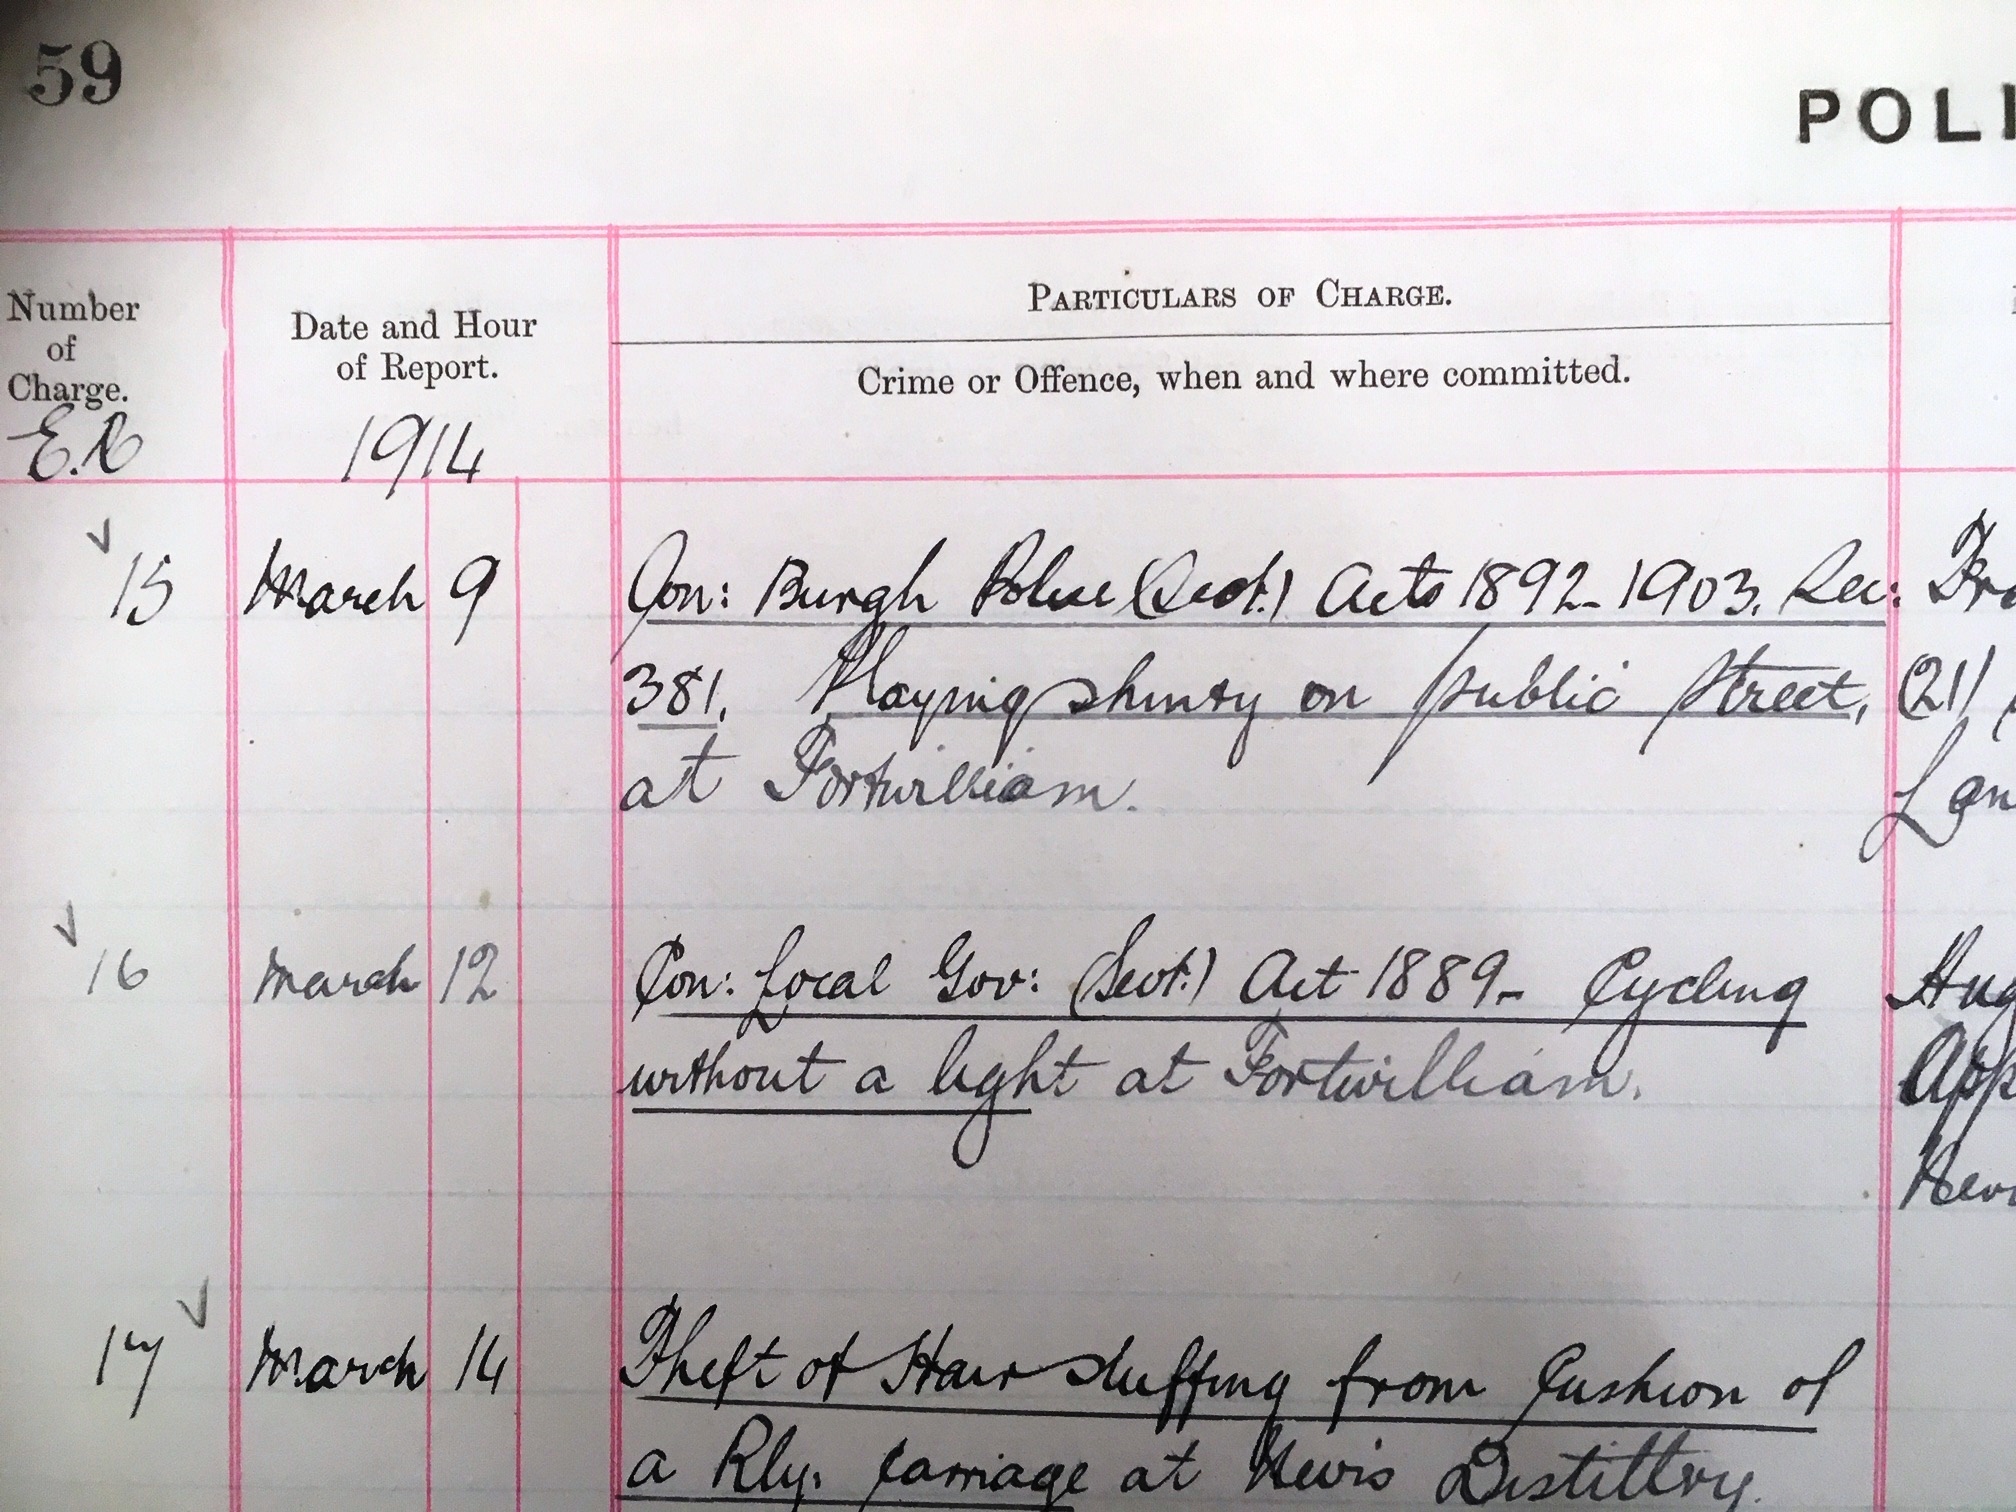 59
POLI
Number
of
Charge.
Date and Hour
of Report.
PARTICULARS OF CHARGE.
Crime or Offence, when and where committed.
1914
15 March 9 Con: Burgh Police (Scot.) Acts 1892-1903. Sec:
381. Playing shinty on public Street, (21)
at Fortwilliam.
16 March 12 Con: Local Gov: (Scot.) Act 1889- Cycling
without a light at Fortwilliam.
17 March 14 Theft of Hair stuffing from Cushion of
a Rly. Carriage at Nevis Distillery.